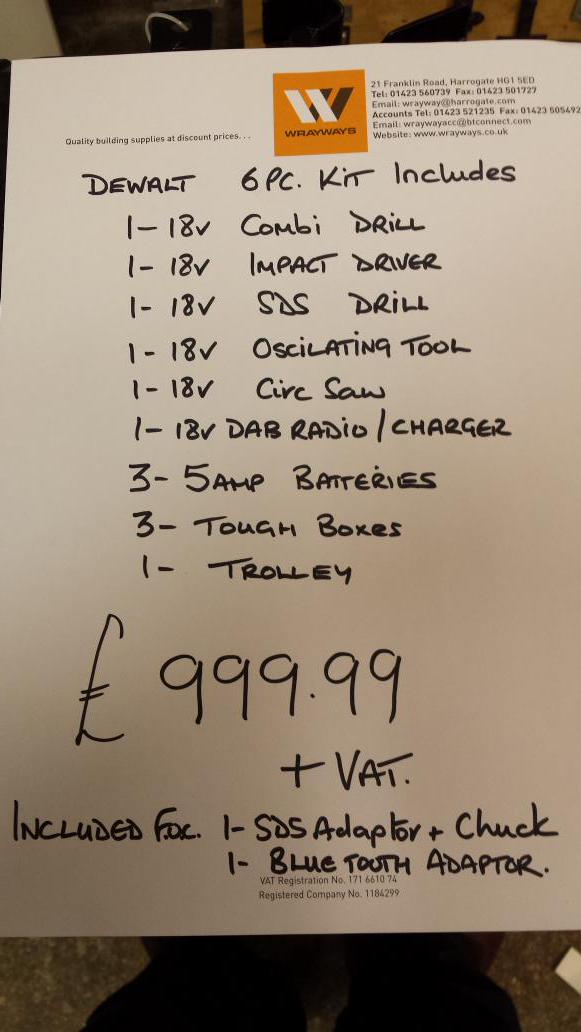 21 Franklin Road, Harrogate HG1 5ED
Tel: 01423 560739 Fax: 01423 501727
Email: wrayway@harrogate.com
Accounts Tel: 01423 521235 Fax: 01423 505492
Email: wraywayacc@btconnect.com
Website: www.wrayways.co.uk
WRAYWAYS
Quality building supplies at discount prices...
DEWALT 6PC. KIT Includes
1- 18v Combi DRILL
1- 18v IMPACT DRIVER
1- 18v SDS DRILL
1- 18v OSCILATING TOOL
1- 18v Circ Saw
1- 18v DAB RADIO / CHARGER
3- 5AMP BATTERIES
3- TOUGH BOXES
1- TROLLEY
£ 999.99
+ VAT.
INCLUDED F.O.C. 1- SDS Adaptor + Chuck
1- BLUE TOOTH ADAPTOR.
VAT Registration No. 171 6610 74
Registered Company No. 1184299